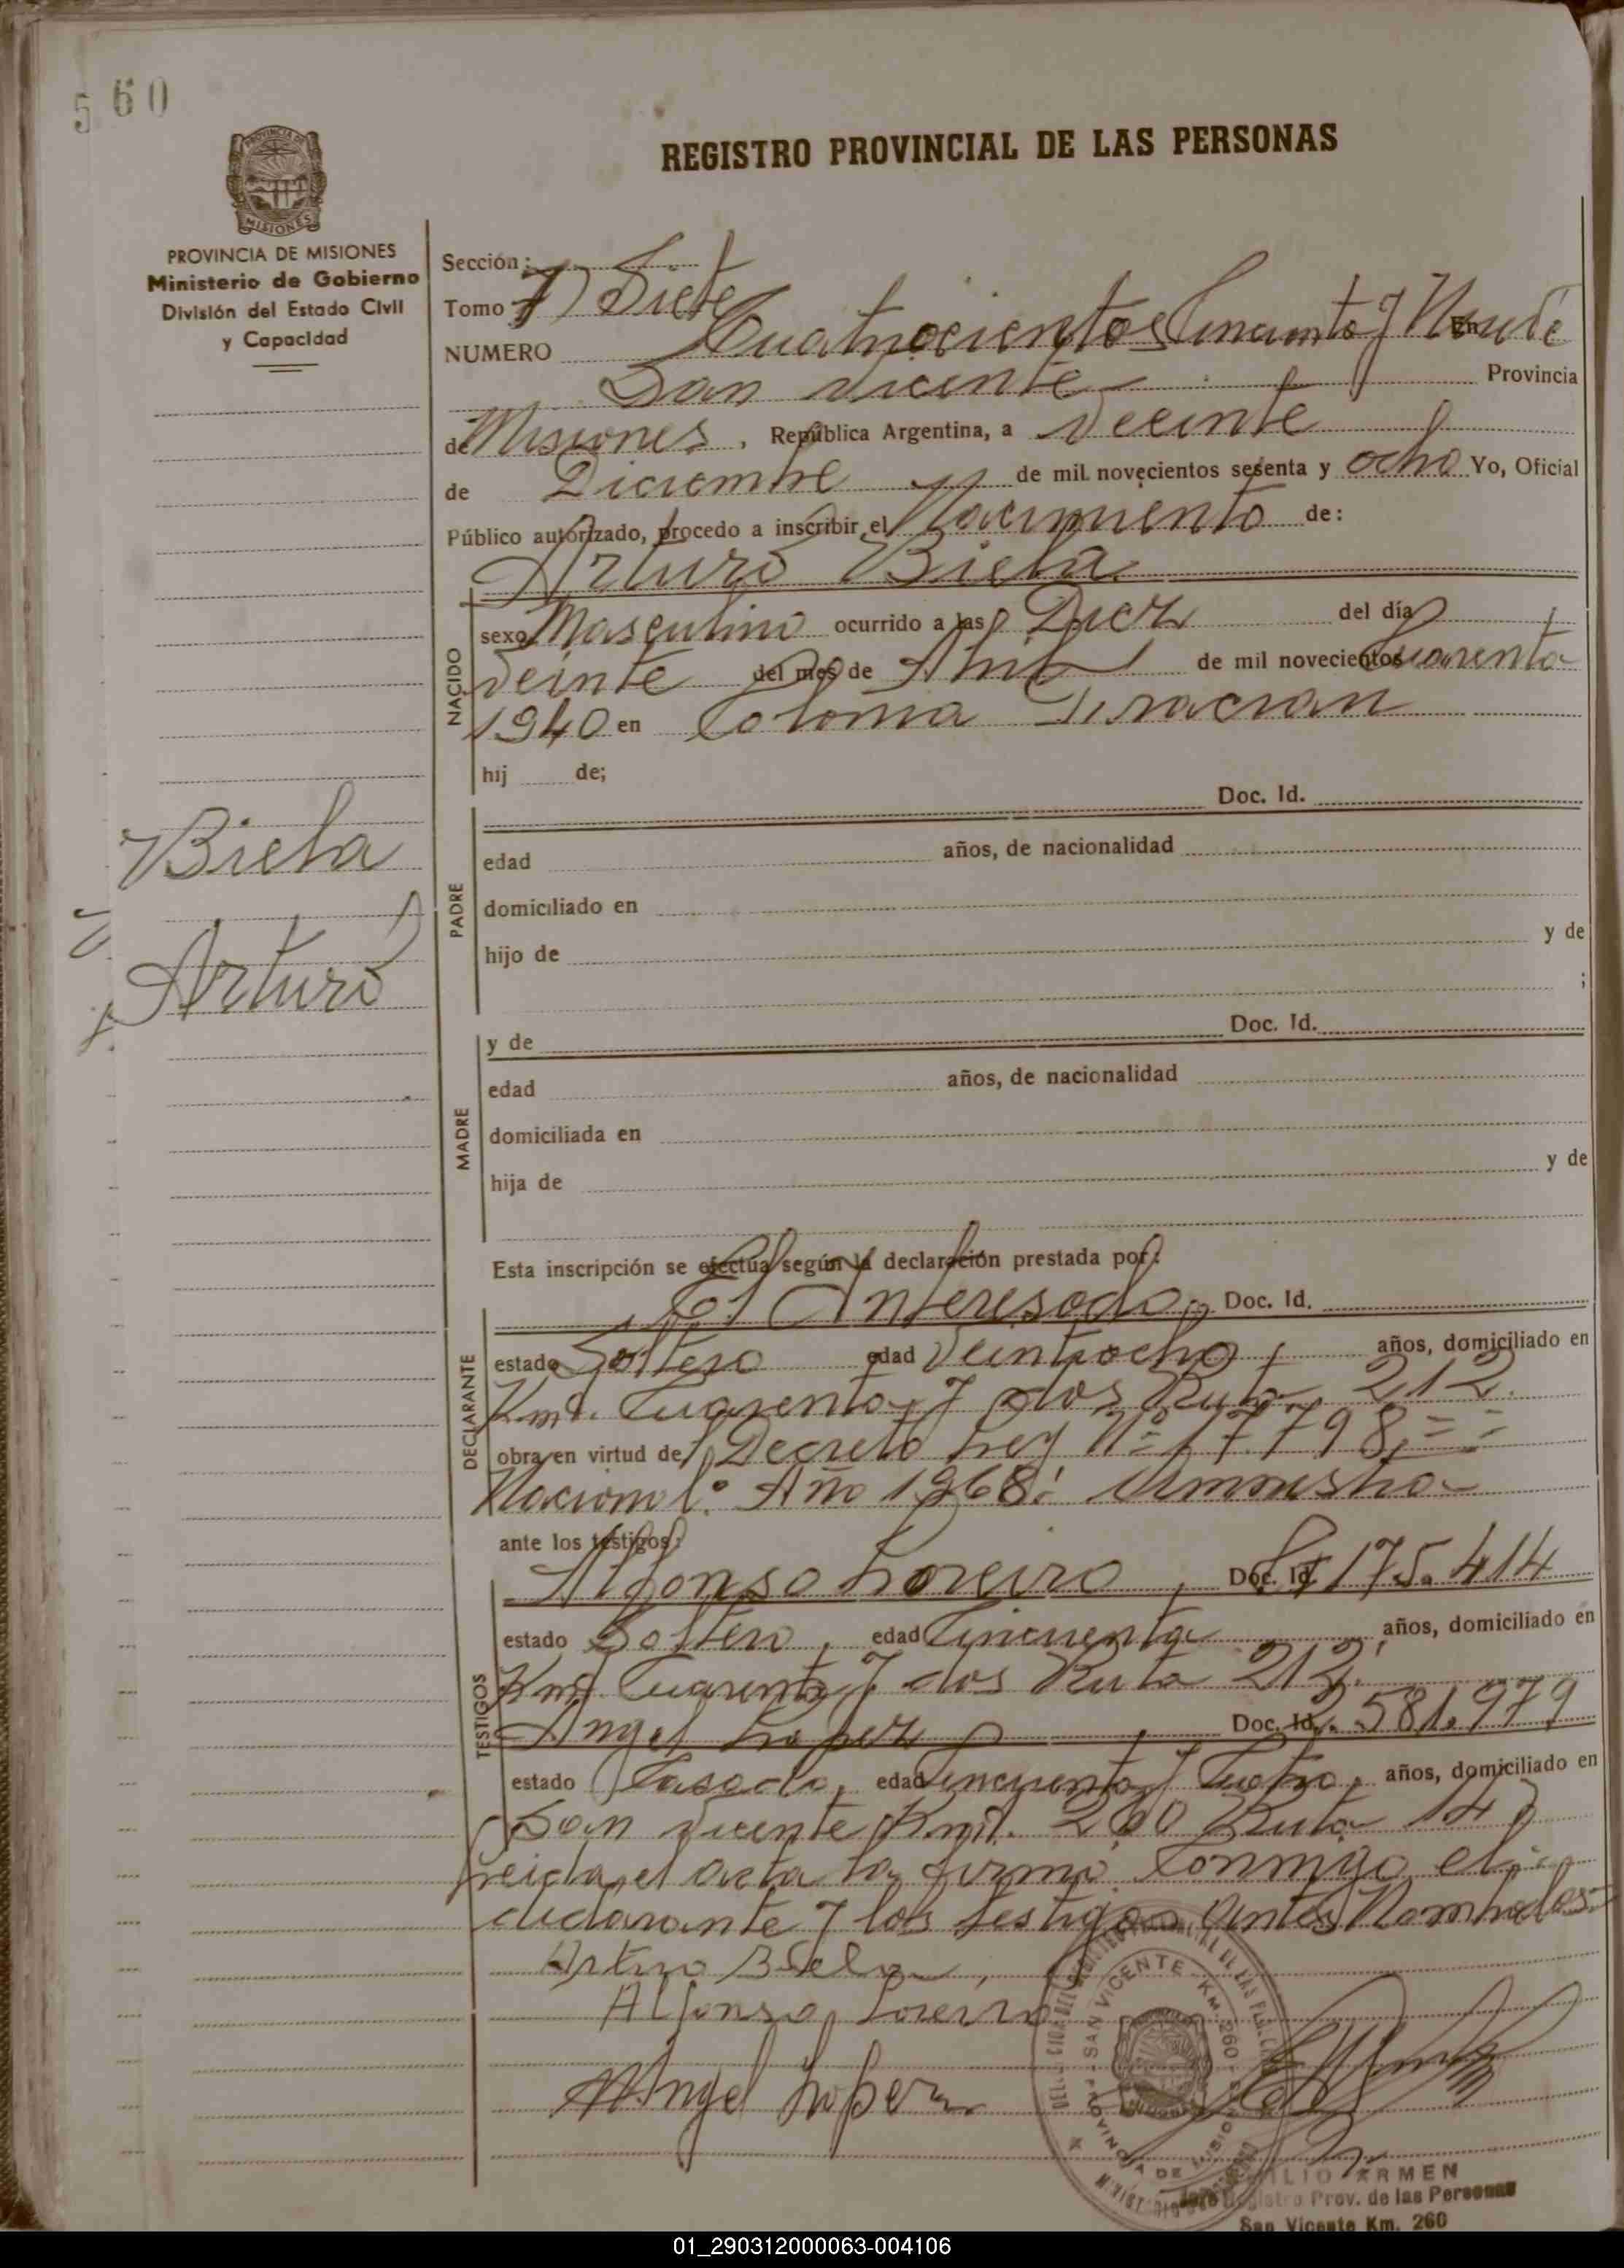 560
REGISTRO PROVINCIAL DE LAS PERSONAS
PROVINCIA DE MISIONES
MISIONES
PROVINCIA DE MISIONES
Ministerio de Gobierno
División del Estado Civil
y Capacidad
Sección:
Tomo 7) Siete
NUMERO Cuatrocientos Cincuenta y Nueve En
San Vicente Provincia
de Misiones, República Argentina, a Veeinte
de Diciembre de mil novecientos sesenta y ocho Yo, Oficial
Público autorizado, procedo a inscribir el Nacimiento de:
Arturo Biela
NACIDO
sexo Masculino ocurrido a las Diez del día
Veinte del mes de Abril de mil novecientos Cuarenta
1940 en Colonia
hij de;
Biela
Arturo
PADRE
Doc. Id.
edad años, de nacionalidad
domiciliado en
hijo de y de
;
MADRE
y de Doc. Id.
edad años, de nacionalidad
domiciliada en
hija de y de
Esta inscripción se efectúa según la declaración prestada por:
DECLARANTE
El Interesado, Doc. Id.
estado Soltero edad Veintiocho, años, domiciliado en
Km. Cuarenta y dos Ruta 212.
obra en virtud de Decreto Ley Nº 17.798,==
Nacional. Año 1968. Amnistia
ante los testigos:
TESTIGOS
Alfonso Loreiro, Doc. Id. 175.414
estado Soltero, edad Cincuenta años, domiciliado en
Km. Cuarenta y dos Ruta 212.
Angel Lopez, Doc. Id. 2.581.979
estado Casado, edad Cincuenta y Cuatro, años, domiciliado en
San Vicente Km. 260 Ruta 14
leida el acta la firma conmigo el
declarante y los testigos antes Nombrados.
Arturo Biela,
Alfonso Loreiro
Angel Lopez
SAN VICENTE - KM. 260 -
PROVINCIA DE MISIONES
ILIO ARMEN
Jefe Registro Prov. de las Personas
San Vicente Km. 260
01_290312000063-004106